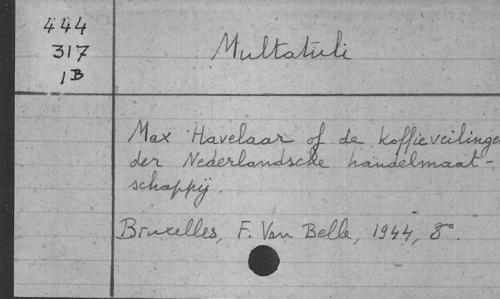 444
317
1B
Multatuli
Max Havelaar of de koffieveilinge
der Nederlandsche handelmaat-
schappij.
Bruxelles, F. Van Belle, 1944, 8°.